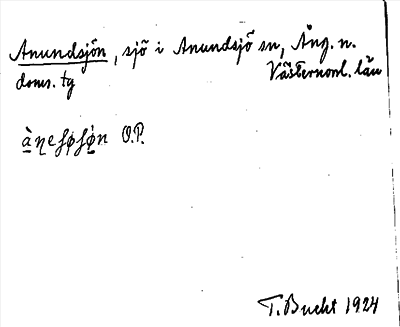 Anundsjön, sjö i Anundsjö sn, Ång. n.
doms. tg
Västernorrl. län
O.P.
T. Bucht 1924